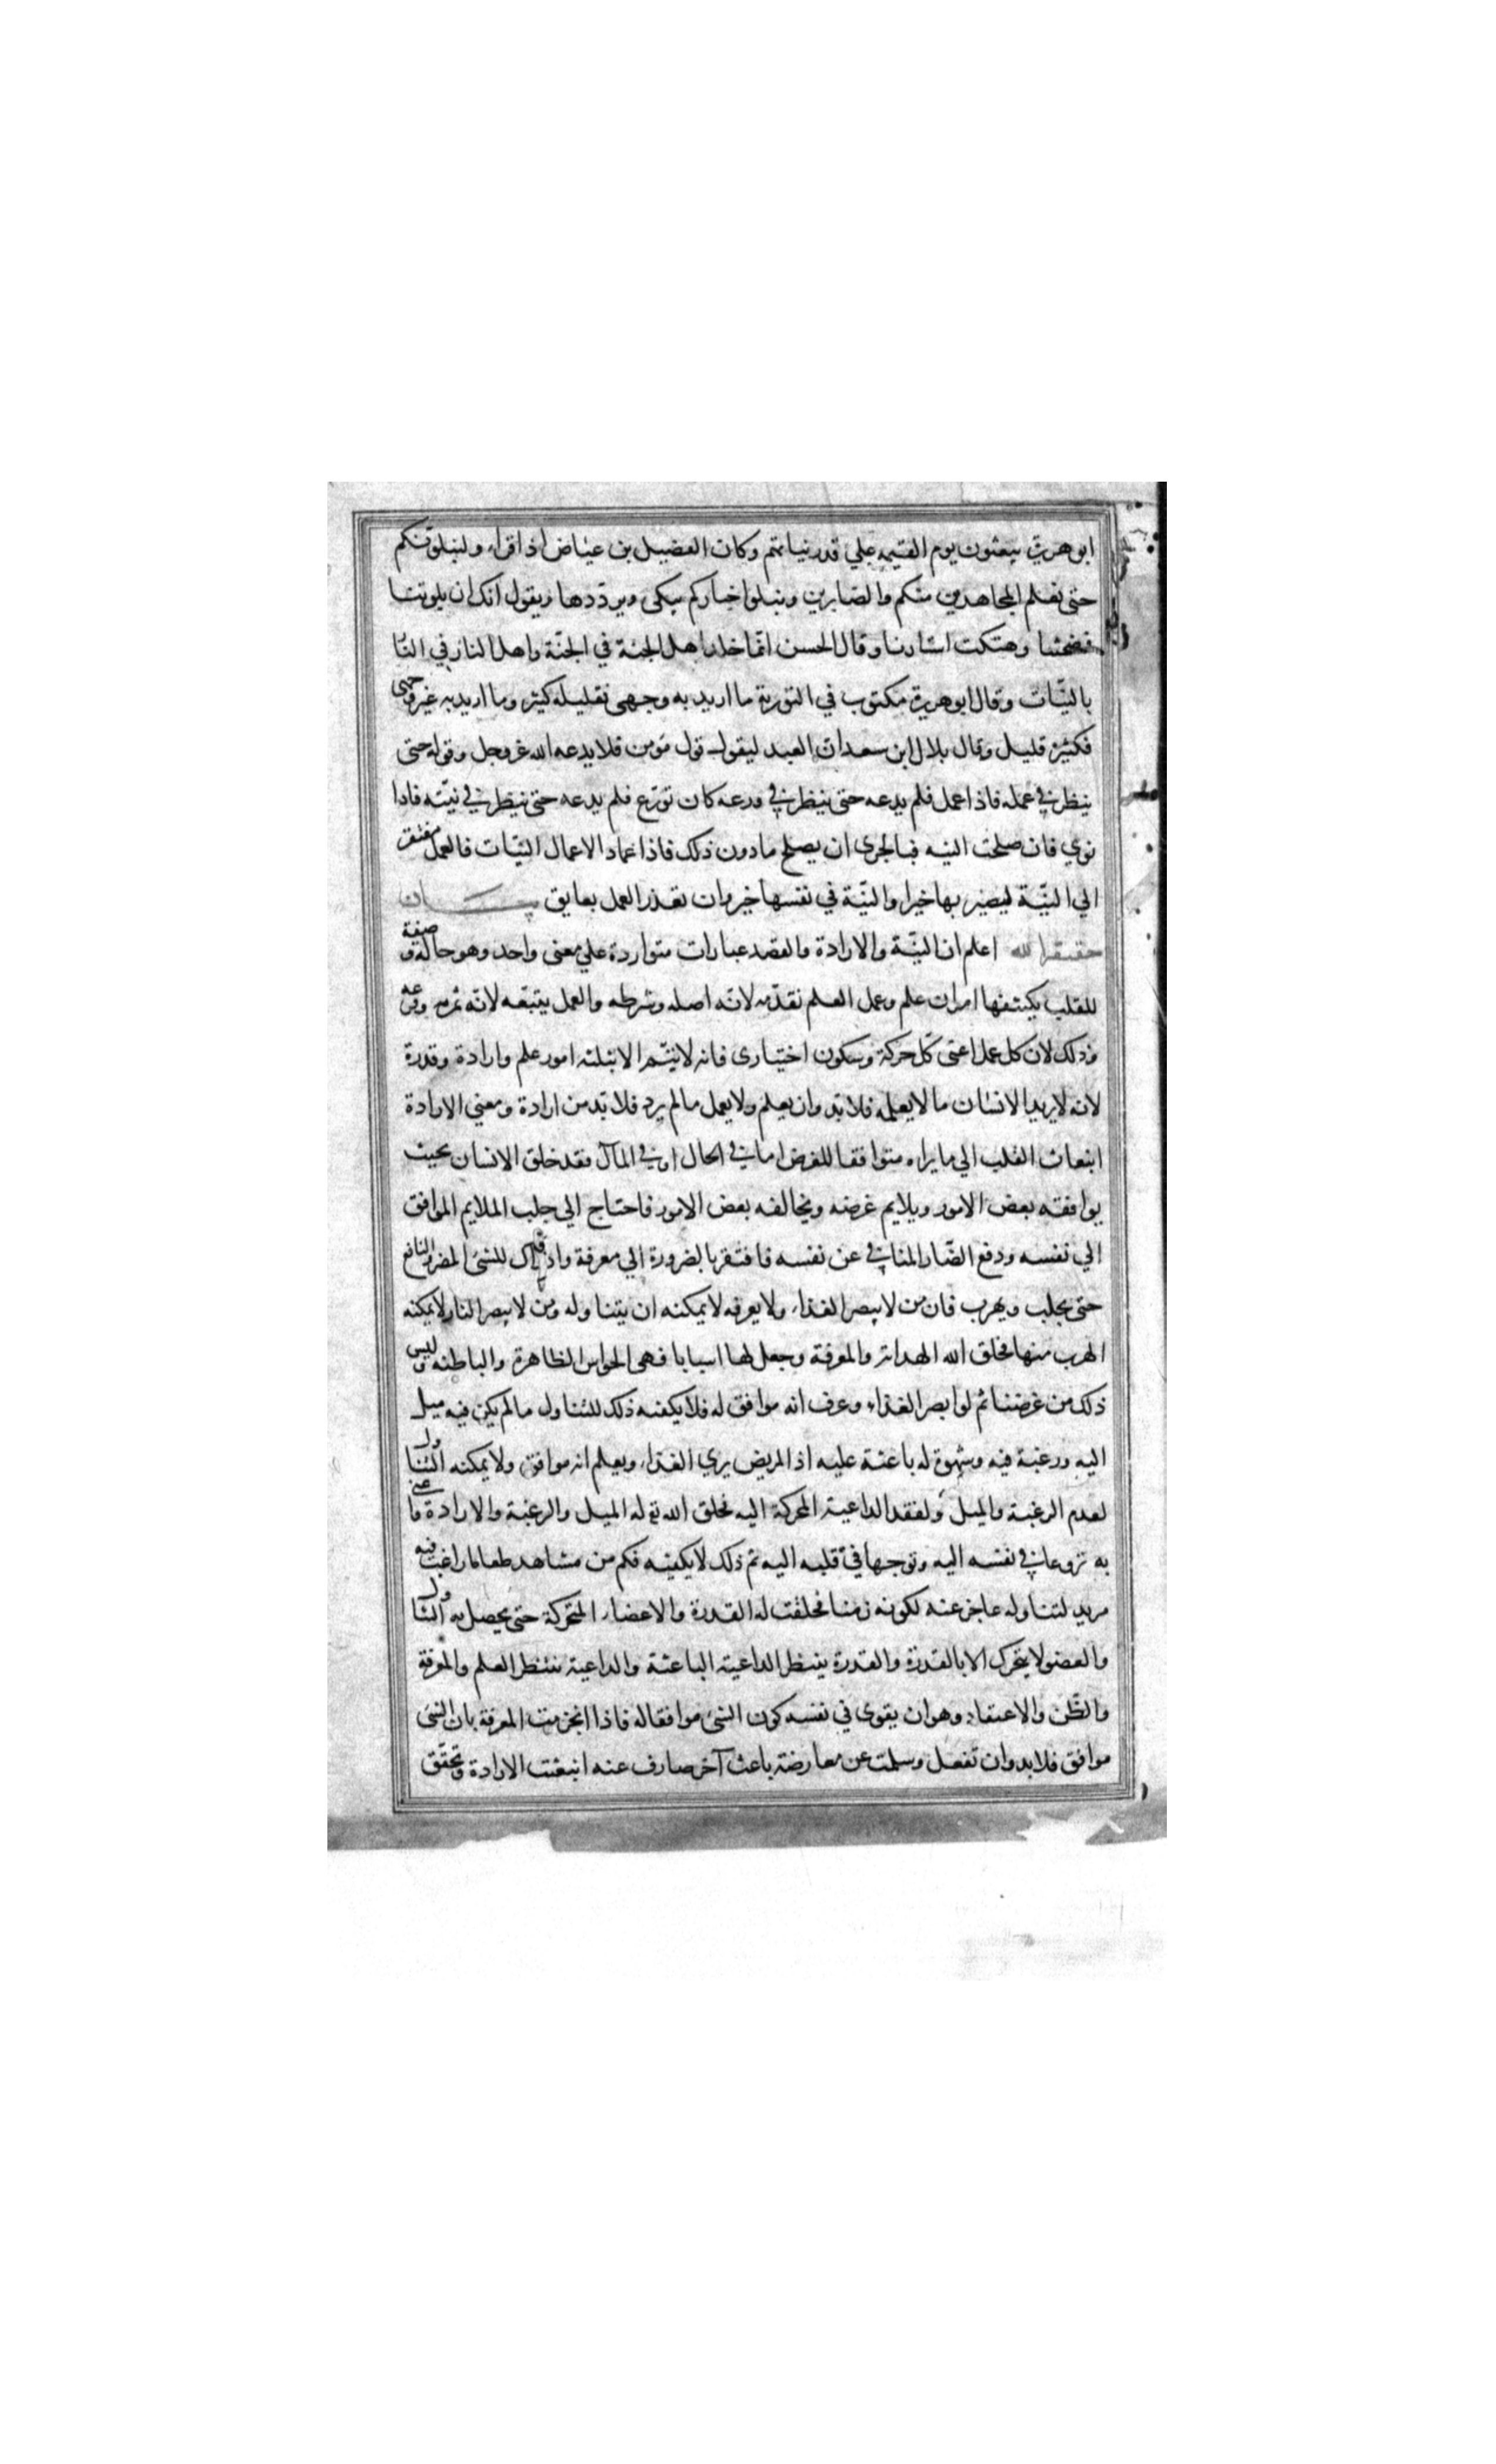 ابو هريرة يبعثون يوم القيمة علي قدر نياتهم وكان الفضيل بن عياض اذا قراء ولنبلونكم
حتى نعلم المجاهدين منكم والصابرين ونبلوا اخباركم يبكى ويرددها ويقول انك ان بلوتنا
فضحتنا وهتكت استارنا وقال الحسن انما خلد اهل الجنة في الجنة واهل النار في النا
بالنيّات وقال ابو هريرة مكتوب في التورية ما اريد به وجهى فقليله كثير وما اريد به غير وجهى
فكثيره قليل وقال بلال ابن سعد ان العبد ليقول قول مؤمن فلا يدعه الله عزوجل وقوله حتى
ينظر في عمله فاذا عمل فلم يدعه حتى ينظر في ورعه كان تورّع فلم يدعه حتى ينظر في نيّته فاذا
نوي فان صلحت النيه فبالحرى ان يصلح ما دون ذلك فاذا عماد الاعمال النيّات فالعمل مفتقر
الي النيّة ليصير بها خيرا والنيّة في نفسها خير وان تعذر العمل بعايق بيان
اعلم ان النيّة والارادة والقصد عبارات متواردة علي معنى واحد وهو حالة و صفة
للقلب يكتنفها امران علم وعمل العلم تقدّمه لانّه اصله وشرطه والعمل يتبعه لانّه ثمرته وفرعه
وذلك لان كل عمل اعنى كل حركة وسكون اختيارى فانه لا يتم الا بثلثه امور علم وارادة وقدرة
لانه لا يريد الانسان ما لا يعلمه فلا بّد وان يعلم ولا يعمل ما لم يرد فلا بّد من ارادة ومعني الارادة
انبعاث القلب الي ما يراه متوافقا للغرض اما في الحال او في المآل فقد خلق الانسان بحيث
يوافقه بعض الامور ويلايم غرضه ويخالفه بعض الامور فاحتاج الي جلب الملايم الموافق
الي نفسه ودفع الضّار المنافي عن نفسه فافتقر بالضرورة الي معرفة وادراك للشئ المضر والنافع
حتى يجلب ويهرب فان من لا يبصر الغذاء ولا يعرفه لا يمكنه ان يتناوله ومن لا يبصر النار لا يمكنه
الهرب منها فخلق الله الهداية والمعرفة وجعل لها اسبابا فهى الحواس الظاهرة والباطنه وليس
ذلك من غرضنا ثم لو ابصر الغذاء وعرف انه موافق له فلا يكفيه ذلك للتناول ما لم يكن فيه ميل
اليه ورغبة فيه وشهوة له باعثة عليه اذ المريض يري الغذاء ويعلم انه موافق ولا يمكنه التناول
لعدم الرغبة والميل ولفقد الداعية المحركة اليه فخلق الله تع له الميل والرغبة والارادة واعنى
به نزوعا في نفسه اليه وتوجها في قلبه اليه ثم ذلك لا يكفيه فكم من مشاهد طعاما راغب فيه
مريد لتناوله عاجز عنه لكونه زمنا فخلقت له القدرة والاعضاء المتحركة حتى يحصل به التناول
والعضو لا يتحرك الا بالقدرة والقدرة ينتظر الداعية الباعثة والداعية ينتظر العلم والمعرفة
والظّن والاعتقاد وهو ان يقوى في نفسه كون الشئ موافقا له فاذا انجزمت المعرفة بان الشئ
موافق فلا بد وان تفعل وسلمت عن معارضة باعث آخر صارف عنه انبعثت الارادة وتحقق